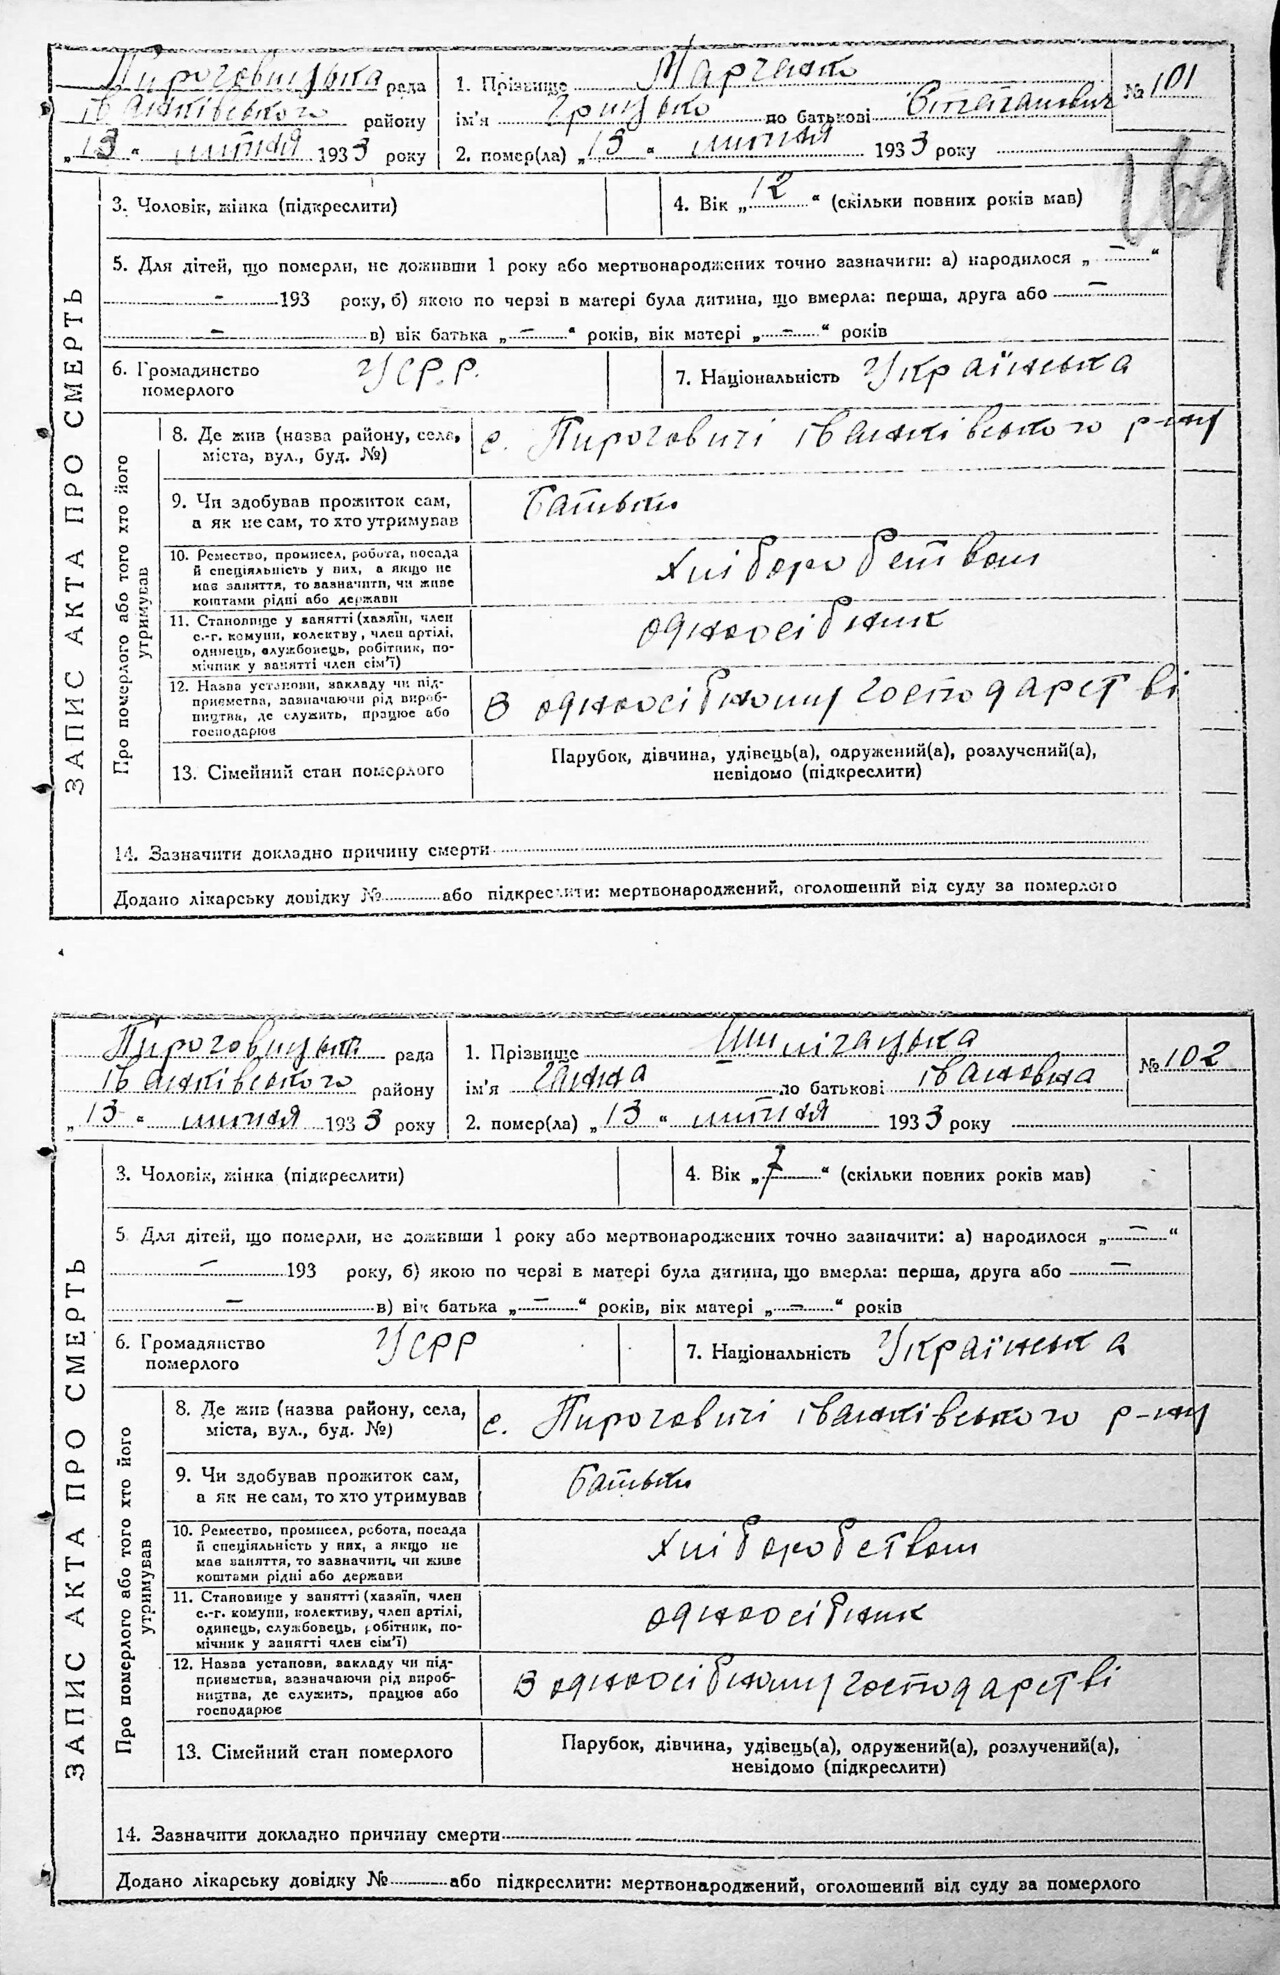 Пироговицька рада
Іванківського району
„13“ липня 1933 року
1. Прізвище Марченко
ім'я Грицько по батькові Степанович
2. помер(ла) „13“ липня 1933 року
№ 101
169
3. Чоловік, жінка (підкреслити)
4. Вік „12“ (скільки повних років мав)
5. Для дітей, що померли, не доживши 1 року або мертвонароджених точно зазначити: а) народилося „–“
– 193 року, б) якою по черзі в матері була дитина, що вмерла: перша, друга або –
– в) вік батька „–“ років, вік матері „–“ років
6. Громадянство
померлого
УСРР.
7. Національність Українська
ЗАПИС АКТА ПРО СМЕРТЬ
Про померлого або того хто його
утримував
8. Де жив (назва району, села,
міста, вул., буд. №)
с. Пироговичі Іванківського р-ну
9. Чи здобував прожиток сам,
а як не сам, то хто утримував
Батьки
10. Ремество, промисел, робота, посада
й спеціяльність у них, а якщо не
мав заняття, то зазначити, чи живе
коштами рідні або держави
хліборобством
11. Становище у занятті (хазяїн, член
с.-г. комуни, колективу, член артілі,
одинець, службовець, робітник, по-
мічник у занятті член сім'ї)
одноосібник
12. Назва установи, закладу чи під-
приємства, зазначаючи рід вироб-
ництва, де служить, працює або
господарює
в одноосібному господарстві
13. Сімейний стан померлого
Парубок, дівчина, удівець(а), одружений(а), розлучений(а),
невідомо (підкреслити)
14. Зазначити докладно причину смерти
Додано лікарську довідку № або підкреслити: мертвонароджений, оголошений від суду за померлого
Пироговицька рада
Іванківського району
„13“ липня 1933 року
1. Прізвище
ім'я Ганна по батькові Івановна
2. помер(ла) „13“ липня 1933 року
№ 102
3. Чоловік, жінка (підкреслити)
4. Вік „7“ (скільки повних років мав)
5. Для дітей, що померли, не доживши 1 року або мертвонароджених точно зазначити: а) народилося „–“
– 193 року, б) якою по черзі в матері була дитина, що вмерла: перша, друга або –
– в) вік батька „–“ років, вік матері „–“ років
6. Громадянство
померлого
УСРР
7. Національність Українська
ЗАПИС АКТА ПРО СМЕРТЬ
Про померлого або того хто його
утримував
8. Де жив (назва району, села,
міста, вул., буд. №)
с. Пироговичі Іванківського р-ну
9. Чи здобував прожиток сам,
а як не сам, то хто утримував
Батьки
10. Ремество, промисел, робота, посада
й спеціяльність у них, а якщо не
мав заняття, то зазначити, чи живе
коштами рідні або держави
хліборобством
11. Становище у занятті (хазяїн, член
с.-г. комуни, колективу, член артілі,
одинець, службовець, робітник, по-
мічник у занятті член сім'ї)
одноосібник
12. Назва установи, закладу чи під-
приємства, зазначаючи рід вироб-
ництва, де служить, працює або
господарює
в одноосібному господарстві
13. Сімейний стан померлого
Парубок, дівчина, удівець(а), одружений(а), розлучений(а),
невідомо (підкреслити)
14. Зазначити докладно причину смерти
Додано лікарську довідку № або підкреслити: мертвонароджений, оголошений від суду за померлого